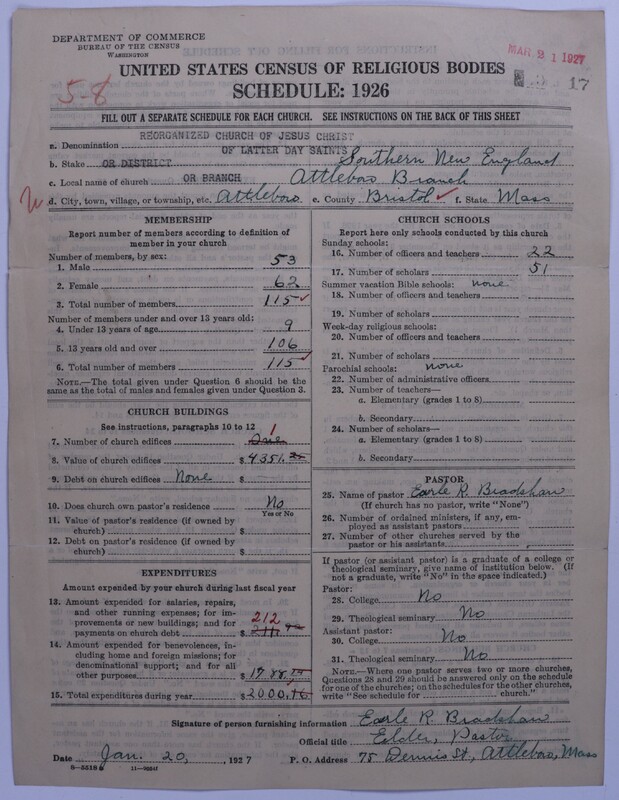 DEPARTMENT OF COMMERCE
BUREAU OF THE CENSUS
WASHINGTON
MAR 21 1927
17
5-8
UNITED STATES CENSUS OF RELIGIOUS BODIES
SCHEDULE: 1926
FILL OUT A SEPARATE SCHEDULE FOR EACH CHURCH. SEE INSTRUCTIONS ON THE BACK OF THIS SHEET
REORGANIZED CHURCH OF JESUS CHRIST
a. Denomination OF LATTER DAY SAINTS
b. Stake OR DISTRICT Southern New England
c. Local name of church OR BRANCH Attleboro Branch
d. City, town, village, or township, etc. Attleboro e. County Bristol ✓ f. State Mass
MEMBERSHIP
Report number of members according to definition of
member in your church
Number of members, by sex:
1. Male 53
2. Female 62
3. Total number of members 115 ✓
Number of members under and over 13 years old:
4. Under 13 years of age 9
5. 13 years old and over 106
6. Total number of members 115 ✓
NOTE.—The total given under Question 6 should be the
same as the total of males and females given under Question 3.
CHURCH BUILDINGS
See instructions, paragraphs 10 to 12
7. Number of church edifices One 1
8. Value of church edifices $4351.
9. Debt on church edifices None $
10. Does church own pastor's residence No
Yes or No
11. Value of pastor's residence (if owned by
church) $
12. Debt on pastor's residence (if owned by
church) $
EXPENDITURES
Amount expended by your church during last fiscal year
13. Amount expended for salaries, repairs,
and other running expenses; for im-
provements or new buildings; and for 212
payments on church debt $ 211
14. Amount expended for benevolences, in-
cluding home and foreign missions; for
denominational support; and for all
other purposes $ 1788.
15. Total expenditures during year $ 2000.
CHURCH SCHOOLS
Report here only schools conducted by this church
Sunday schools:
16. Number of officers and teachers 22
17. Number of scholars 51
Summer vacation Bible schools: none
18. Number of officers and teachers
19. Number of scholars
Week-day religious schools:
20. Number of officers and teachers
21. Number of scholars
Parochial schools: none
22. Number of administrative officers
23. Number of teachers—
a. Elementary (grades 1 to 8)
b. Secondary
24. Number of scholars—
a. Elementary (grades 1 to 8)
b. Secondary
PASTOR
25. Name of pastor Earle R. Bradshaw
(If church has no pastor, write "None")
26. Number of ordained ministers, if any, em-
ployed as assistant pastors
27. Number of other churches served by the
pastor or his assistants
If pastor (or assistant pastor) is a graduate of a college or
theological seminary, give name of institution below. (If
not a graduate, write "No" in the space indicated.)
Pastor:
28. College No
29. Theological seminary No
Assistant pastor:
30. College No
31. Theological seminary No
NOTE.—Where one pastor serves two or more churches,
Questions 28 and 29 should be answered only on the schedule
for one of the churches; on the schedules for the other churches,
write "See schedule for church."
Signature of person furnishing information Earle R. Bradshaw
Official title Elder, Pastor
Date Jan. 20, 1927 P. O. Address 75 Dennis St, Attleboro, Mass
8-5518a 11-9064f